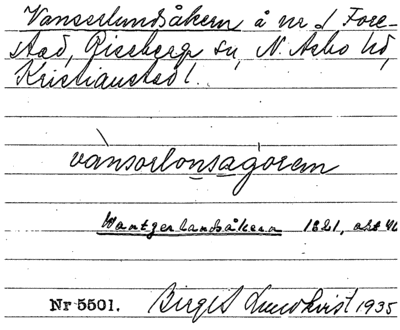 Vansorlundsåkern å nr 1 Fore-
stad, Riseberga sn, N. Åsbo hd,
Kristianstad l.
vànsorlonsagòrem
Wantzerlandsåkern 1821, akt 46
Nr 5501. Birgit Lundkvist 1935